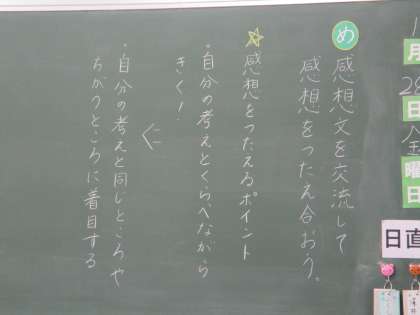 め 感想文を交流して
感想をつたえ合おう。
☆感想をつたえるポイント
・自分の考えとくらべながら
きく！
・自分の考えと同じところや
ちがうところに着目する
月
28
日
金
曜
日
日直